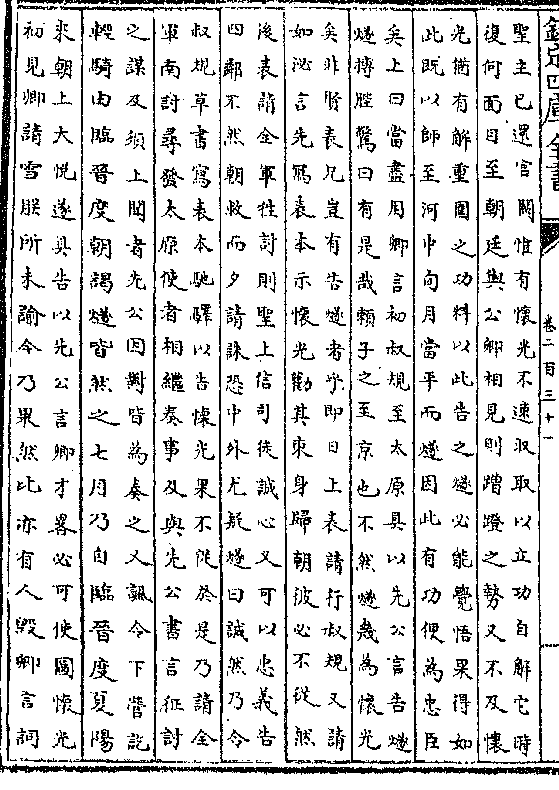 欽定四庫全書
卷二百三十一
聖主已還宮闕惟有懷光不速収取以立功自解它時
復何面目至朝廷與公卿相見則蹭蹬之勢又不及懷
光猶有解重圍之功料以此告之燧必能覺悟果得如
此既以師至河中旬月當平而燧因此有功便為忠臣
矣上曰當盡用卿言初叔規至太原具以先公言告燧
燧搏膺驚曰有是哉賴子之至京也不然燧幾為懷光
矣非賢表兄豈有告燧者乎即日上表請行叔規又請
如泌言先寫表本示懷光勸其束身歸朝彼必不從然
後表請全軍往討則聖上信司徒誠心又可以忠義告
四鄰不然朝救而夕請誅恐中外尤疑燧曰誠然乃令
叔規草書寫表本馳驛以告懷光果不從於是乃請全
軍南討尋發太原使者相繼奏事及與先公書言征討
之謀及須上聞者先公因對皆為奏之又諷令下營訖
輕騎由臨晉度朝謁燧皆然之七月乃自臨晉度夏陽
來朝上大悅遂具告以先公言卿才畧必可使圖懷光
初見卿請雪朕所未諭今乃果然比亦有人毀卿言詞